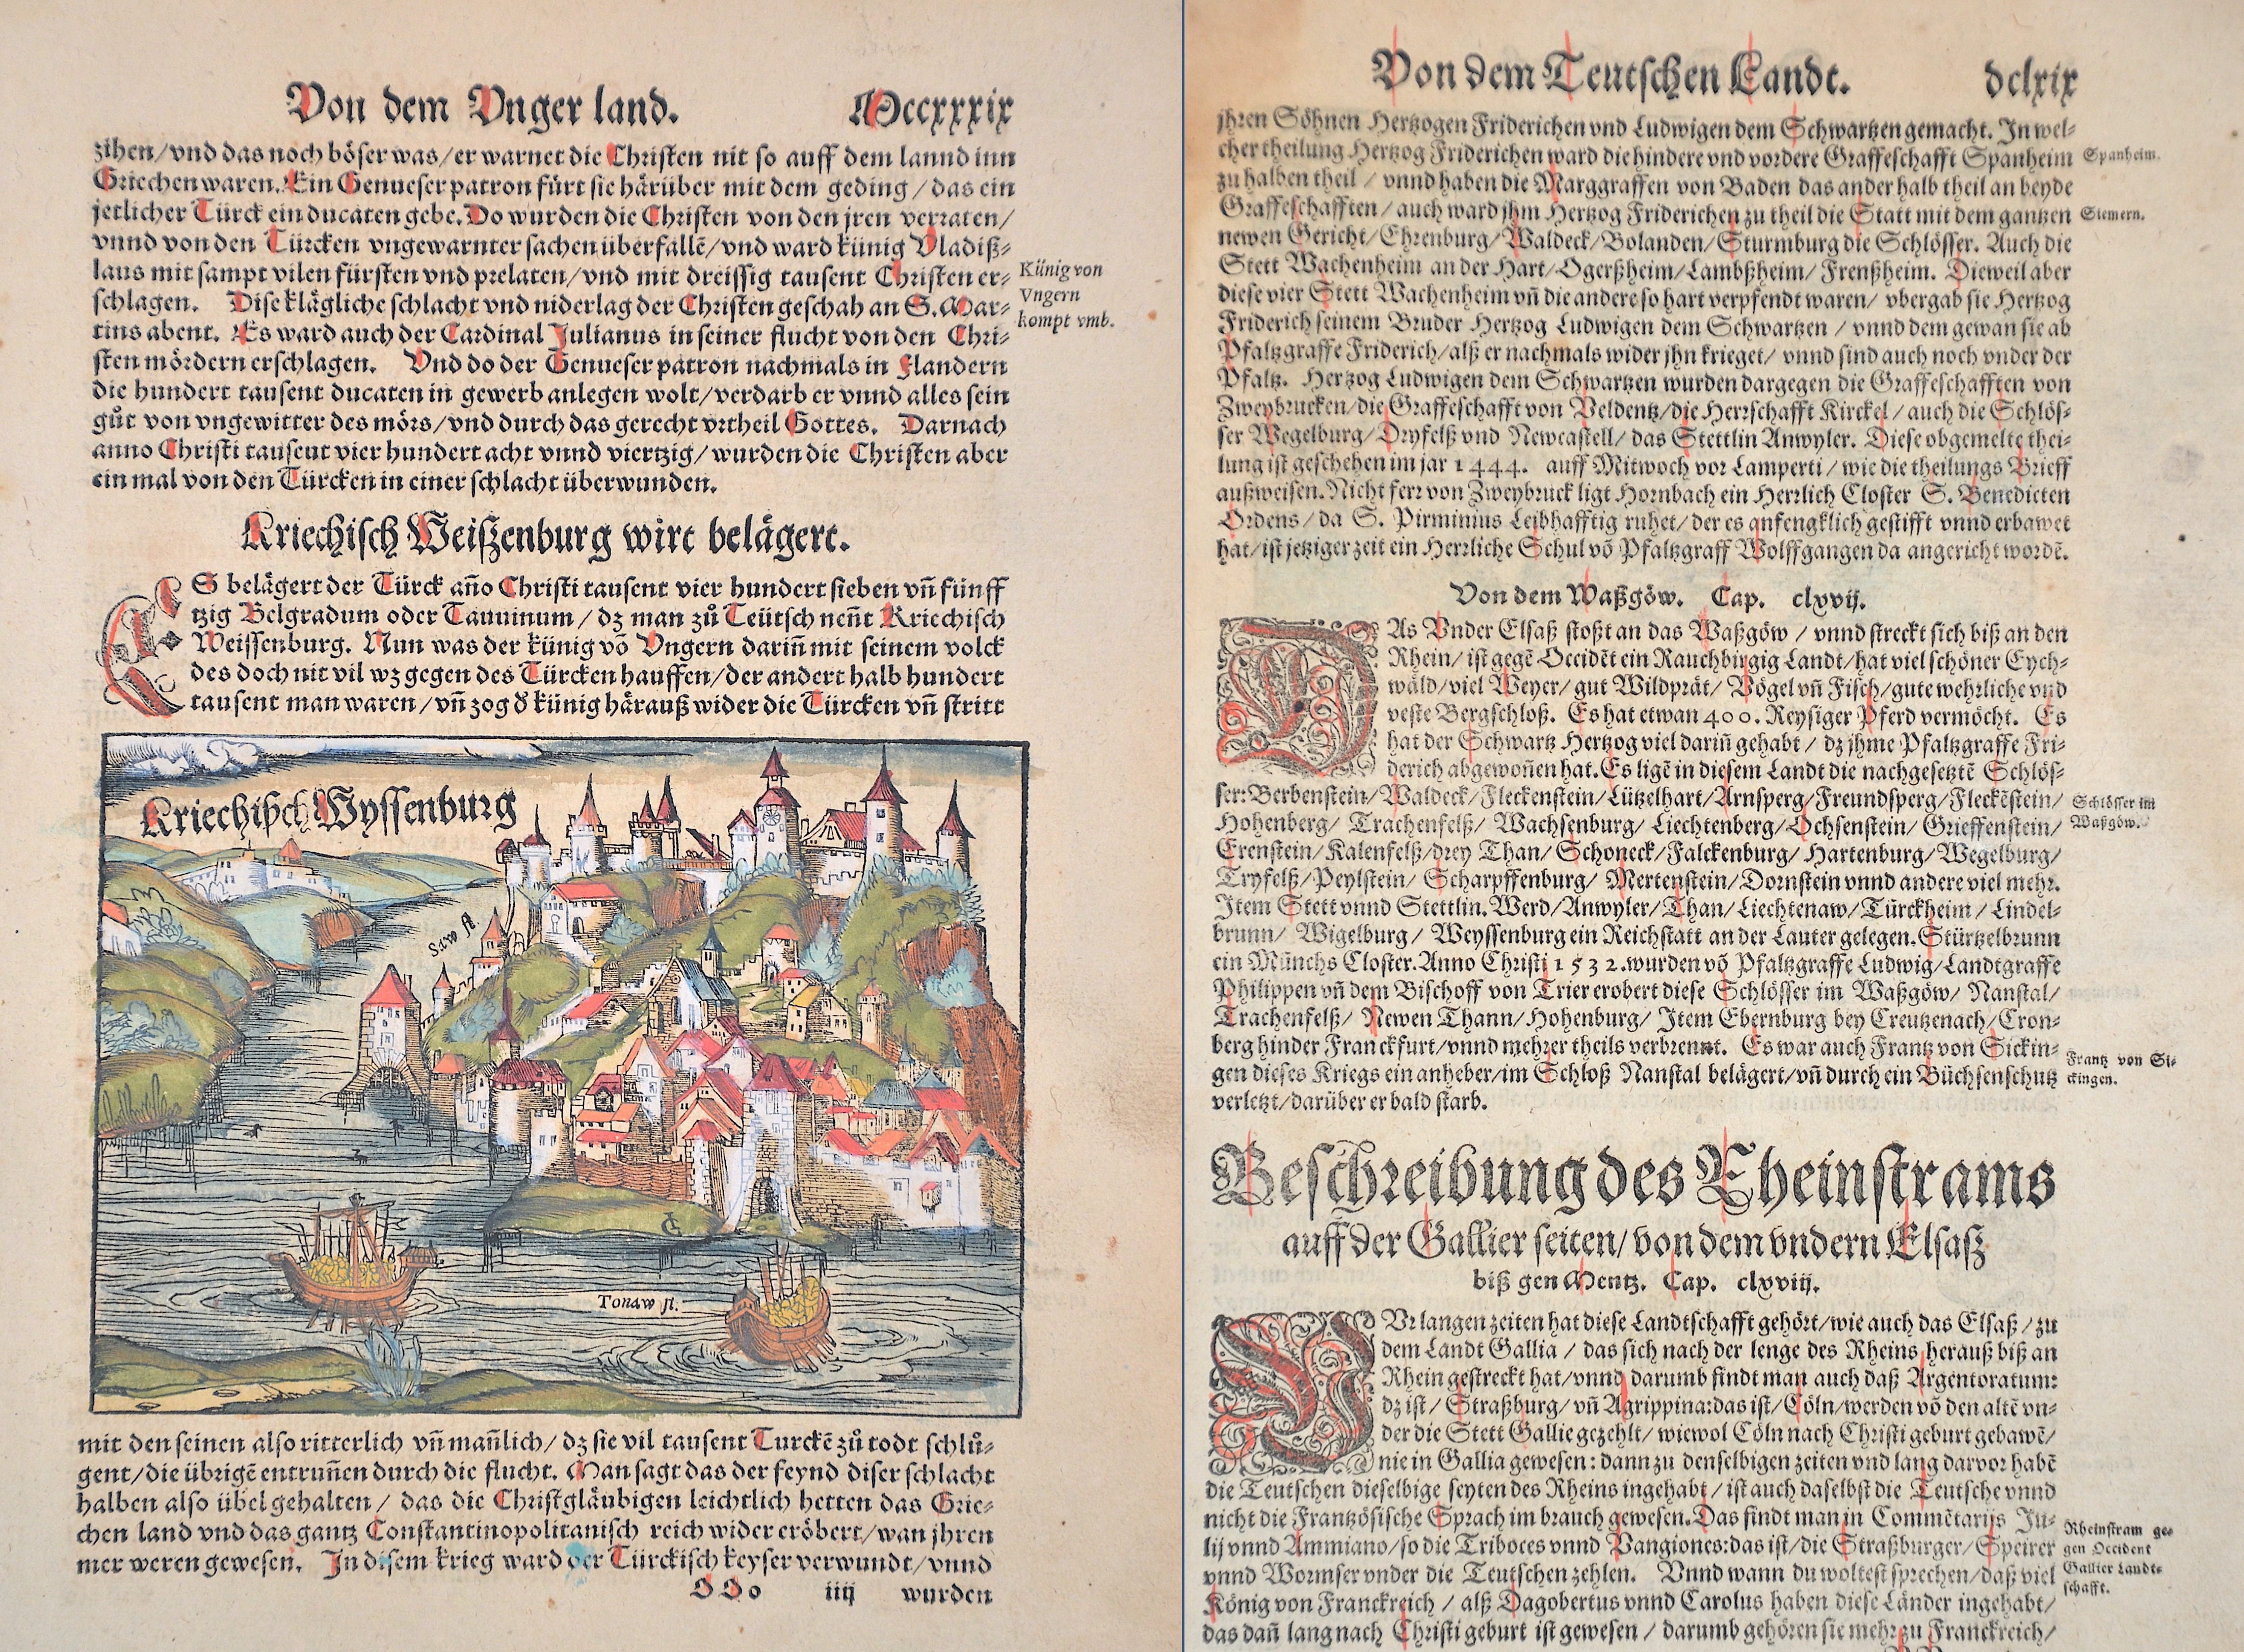 Von dem Vnger land. Mccxxxix
zihen/vnd das noch böser was/er warnet die Christen nit so auff dem lannd inn
Griechen waren. Ein Genueser patron fürt sie härüber mit dem geding/das ein
jetlicher Türck ein ducaten gebe. Do wurden die Christen von den jren verraten/
vnnd von den Türcken vngewarnter sachen überfallẽ/vnd ward künig Vladiß-
laus mit sampt vilen fürsten vnd prelaten/vnd mit dreissig tausent Christen er-
schlagen. Dise klägliche schlacht vnd niderlag der Christen geschah an S. Mar-
tins abent. Es ward auch der Cardinal Julianus in seiner flucht von den Chri-
sten mördern erschlagen. Vnd do der Genueser patron nachmals in Flandern
die hundert tausent ducaten in gewerb anlegen wolt/verdarb er vnnd alles sein
gůt von vngewitter des mörs/vnd durch das gerecht vrtheil Gottes. Darnach
anno Christi tausent vier hundert acht vnnd viertzig/wurden die Christen aber
ein mal von den Türcken in einer schlacht überwunden.
Künig von
Vngern
kompt vmb.
Kriechisch Weißzenburg wirt belägert.
ES belägert der Türck año Christi tausent vier hundert sieben vñ fünff
tzig Belgradum oder Taurinum/dz man zů Teütsch neñt Kriechisch
Weissenburg. Nun was der künig võ Vngern dariñ mit seinem volck
des doch nit vil wz gegen des Türcken hauffen/der andert halb hundert
tausent man waren/vñ zog d̃ künig härauß wider die Türcken vñ stritt
Kriechisch Wyssenburg
Saw fl.
Tonaw fl.
mit den seinen also ritterlich vñ mañlich/dz sie vil tausent Turckẽ zů todt schlů-
gent/die übrigẽ entruñen durch die flucht. Man sagt das der feynd diser schlacht
halben also übel gehalten/das die Christgläubigen leichtlich hetten das Grie-
chen land vnd das gantz Constantinopolitanisch reich wider eröbert/wan jhren
mer weren gewesen. In disem krieg ward der Türckisch keyser verwundt/vnnd
OOo iiij wurden
Von dem Teutschen Landt. dclxix
jhren Söhnen Hertzogen Friderichen vnd Ludwigen dem Schwartzen gemacht. In wel-
cher theilung Hertzog Friderichen ward die hindere vnd vordere Graffeschafft Spanheim
zu halben theil/vnnd haben die Marggraffen von Baden das ander halb theil an beyde
Graffeschafften/auch ward jhm Hertzog Friderichen zu theil die Statt mit dem gantzen
newen Gericht/Ehrenburg/Waldeck/Bolanden/Sturmburg die Schlösser. Auch die
Stett Wachenheim an der Hart/Ogerßheim/Lambßheim/Frenßheim. Dieweil aber
diese vier Stett Wachenheim vñ die andere so hart verpfendt waren/vbergab sie Hertzog
Friderich seinem Bruder Hertzog Ludwigen dem Schwartzen/vnnd dem gewan sie ab
Pfaltzgraffe Friderich/alß er nachmals wider jhn krieget/vnnd sind auch noch vnder der
Pfaltz. Hertzog Ludwigen dem Schwartzen wurden dargegen die Graffeschafften von
Zweybrucken/die Graffeschafft von Veldentz/die Herrschafft Kirckel/auch die Schlös-
ser Wegelburg/Dryfelß vnd Newcastell/das Stettlin Anwyler. Diese obgemelte thei-
lung ist geschehen im jar 1444. auff Mitwoch vor Lamperti/wie die theilungs Brieff
außweisen. Nicht ferr von Zweybruck ligt Hornbach ein Herrlich Closter S. Benedicten
Ordens/da S. Pirminius Leibhafftig ruhet/der es anfengklich gestifft vnnd erbawet
hat/ist jetziger zeit ein Herrliche Schul võ Pfaltzgraff Wolffgangen da angericht wordẽ.
Spanheim.
Siemern.
Von dem Waßgöw. Cap. clxvij.
DAs Vnder Elsaß stoßt an das Waßgöw/vnnd streckt sich biß an den
Rhein/ist gegẽ Occidẽt ein Rauchbirgig Landt/hat viel schöner Eych-
wäld/viel Weyer/gut Wildprät/Vögel vñ Fisch/gute wehrliche vnd
veste Bergschloß. Es hat etwan 400. Reysiger Pferd vermöcht. Es
hat der Schwartz Hertzog viel dariñ gehabt/dz jhme Pfaltzgraffe Fri-
derich abgewoñen hat. Es ligẽ in diesem Landt die nachgesetztẽ Schlös-
ser: Berbenstein/Waldeck/Fleckenstein/Lützelhart/Arnsperg/Freundsperg/Fleckẽstein/
Hohenberg/Trachenfelß/Wachsenburg/Liechtenberg/Ochsenstein/Grieffenstein/
Erenstein/Kalenfelß/drey Than/Schoneck/Falckenburg/Hartenburg/Wegelburg/
Tryfelß/Peylstein/Scharpffenburg/Mertenstein/Dornstein vnnd andere viel mehr.
Item Stett vnnd Stettlin. Werd/Anwyler/Than/Liechtenaw/Türckheim/Lindel-
brunn/Wigelburg/Weyssenburg ein Reichstatt an der Lauter gelegen. Stürtzelbrunn
ein Münchs Closter. Anno Christi 1532. wurden võ Pfaltzgraffe Ludwig/Landtgraffe
Philippen vñ dem Bischoff von Trier erobert diese Schlösser im Waßgöw/Nanstal/
Trachenfelß/Newen Thann/Hohenburg/Item Ebernburg bey Creutzenach/Cron-
berg hinder Franckfurt/vnnd mehrer theils verbrennt. Es war auch Frantz von Sickin-
gen dieses Kriegs ein anheber/im Schloß Nanstal belägert/vñ durch ein Büchsenschutz
verletzt/darüber er bald starb.
Schlösser im
Waßgöw.
Frantz von Si-
ckingen.
Beschreibung des Rheinstrams
auff der Gallier seiten/von dem vndern Elsaß
biß gen Mentz. Cap. clxviij.
VOr langen zeiten hat diese Landtschafft gehört/wie auch das Elsaß/zu
dem Landt Gallia/das sich nach der lenge des Rheins herauß biß an
Rhein gestreckt hat/vnnd darumb findt man auch daß Argentoratum:
dz ist/Straßburg/vñ Agrippina: das ist/Cöln/werden võ den altẽ vn-
der die Stett Gallie gezehlt/wiewol Cöln nach Christi geburt gebawẽ/
nie in Gallia gewesen: dann zu denselbigen zeiten vnd lang darvor habẽ
die Teutschen dieselbige seyten des Rheins ingehabt/ist auch daselbst die Teutsche vnnd
nicht die Frantzösische Sprach im brauch gewesen. Das findt man in Commẽtarijs Ju-
lij vnnd Ammiano/so die Triboces vnnd Vangiones: das ist/die Straßburger/Speirer
vnnd Wormser vnder die Teutschen zehlen. Vnnd wann du woltest sprechen/daß viel
König von Franckreich/alß Dagobertus vnnd Carolus haben diese Länder ingehabt/
das dañ lang nach Christi geburt ist gewesen/darumb gehören sie mehr zu Franckreich/
Rheinstram ge-
gen Occident
Gallier Landt-
schafft.